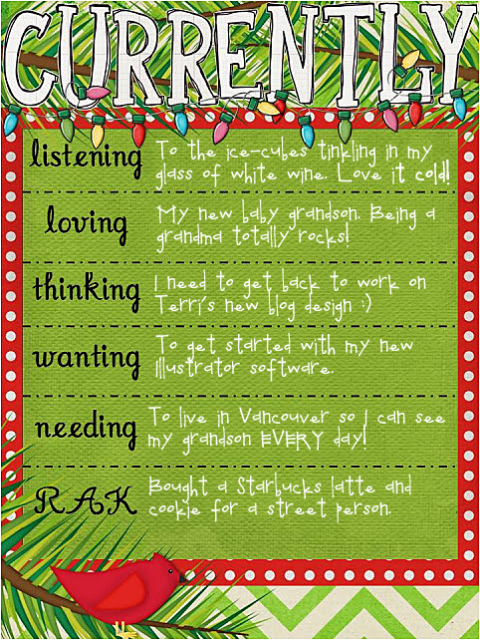 CURRENTLY
listening
To the ice-cubes tinkling in my
glass of white wine. Love it cold!
loving
My new baby grandson. Being a
grandma totally rocks!
thinking
I need to get back to work on
Terri's new blog design :)
wanting
To get started with my new
Illustrator software.
needing
To live in Vancouver so I can see
my grandson EVERY day!
RAK
Bought a Starbucks latte and
cookie for a street person.